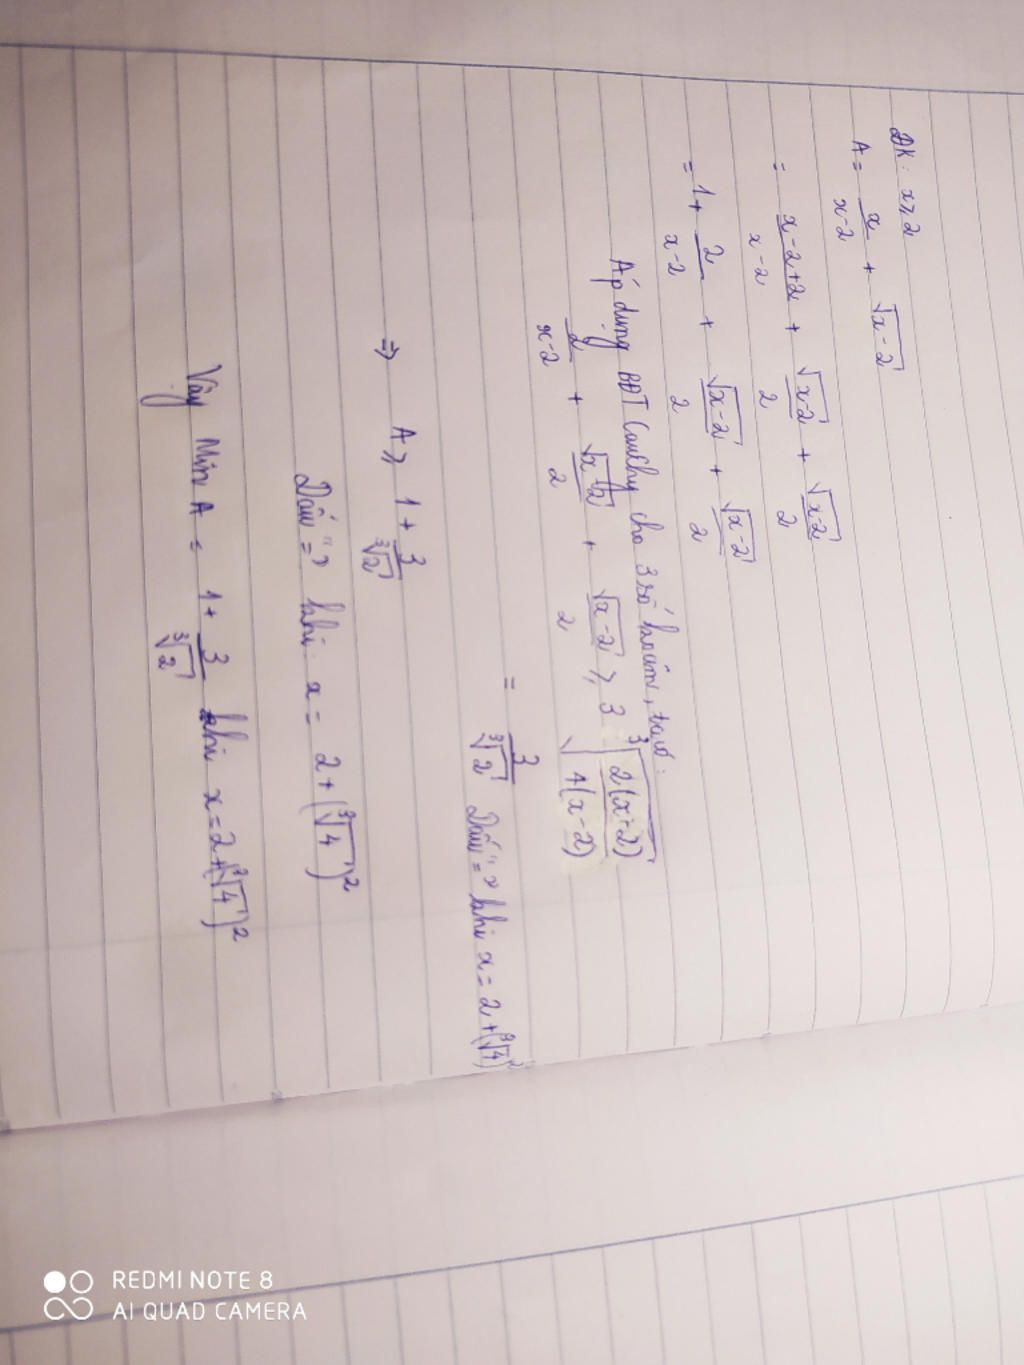 ĐK: x > 2
A = x/(x-2) + √(x-2)
= (x-2+2)/(x-2) + √(x-2)/2 + √(x-2)/2
= 1 + 2/(x-2) + √(x-2)/2 + √(x-2)/2
Áp dụng BĐT Cauchy cho 3 số
2/(x-2) + √(x-2)/2 + √(x-2)/2 ⩾ 3 ∛(2(x-2)/4(x-2))
= 3/∛2 Dấu "=" khi x = 2 + (∛4)²
⇒ A ⩾ 1 + 3/∛2
Dấu "=" khi: x = 2 + (∛4)²
Vậy Min A = 1 + 3/∛2 khi x = 2 + (∛4)²
REDMI NOTE 8
AI QUAD CAMERA